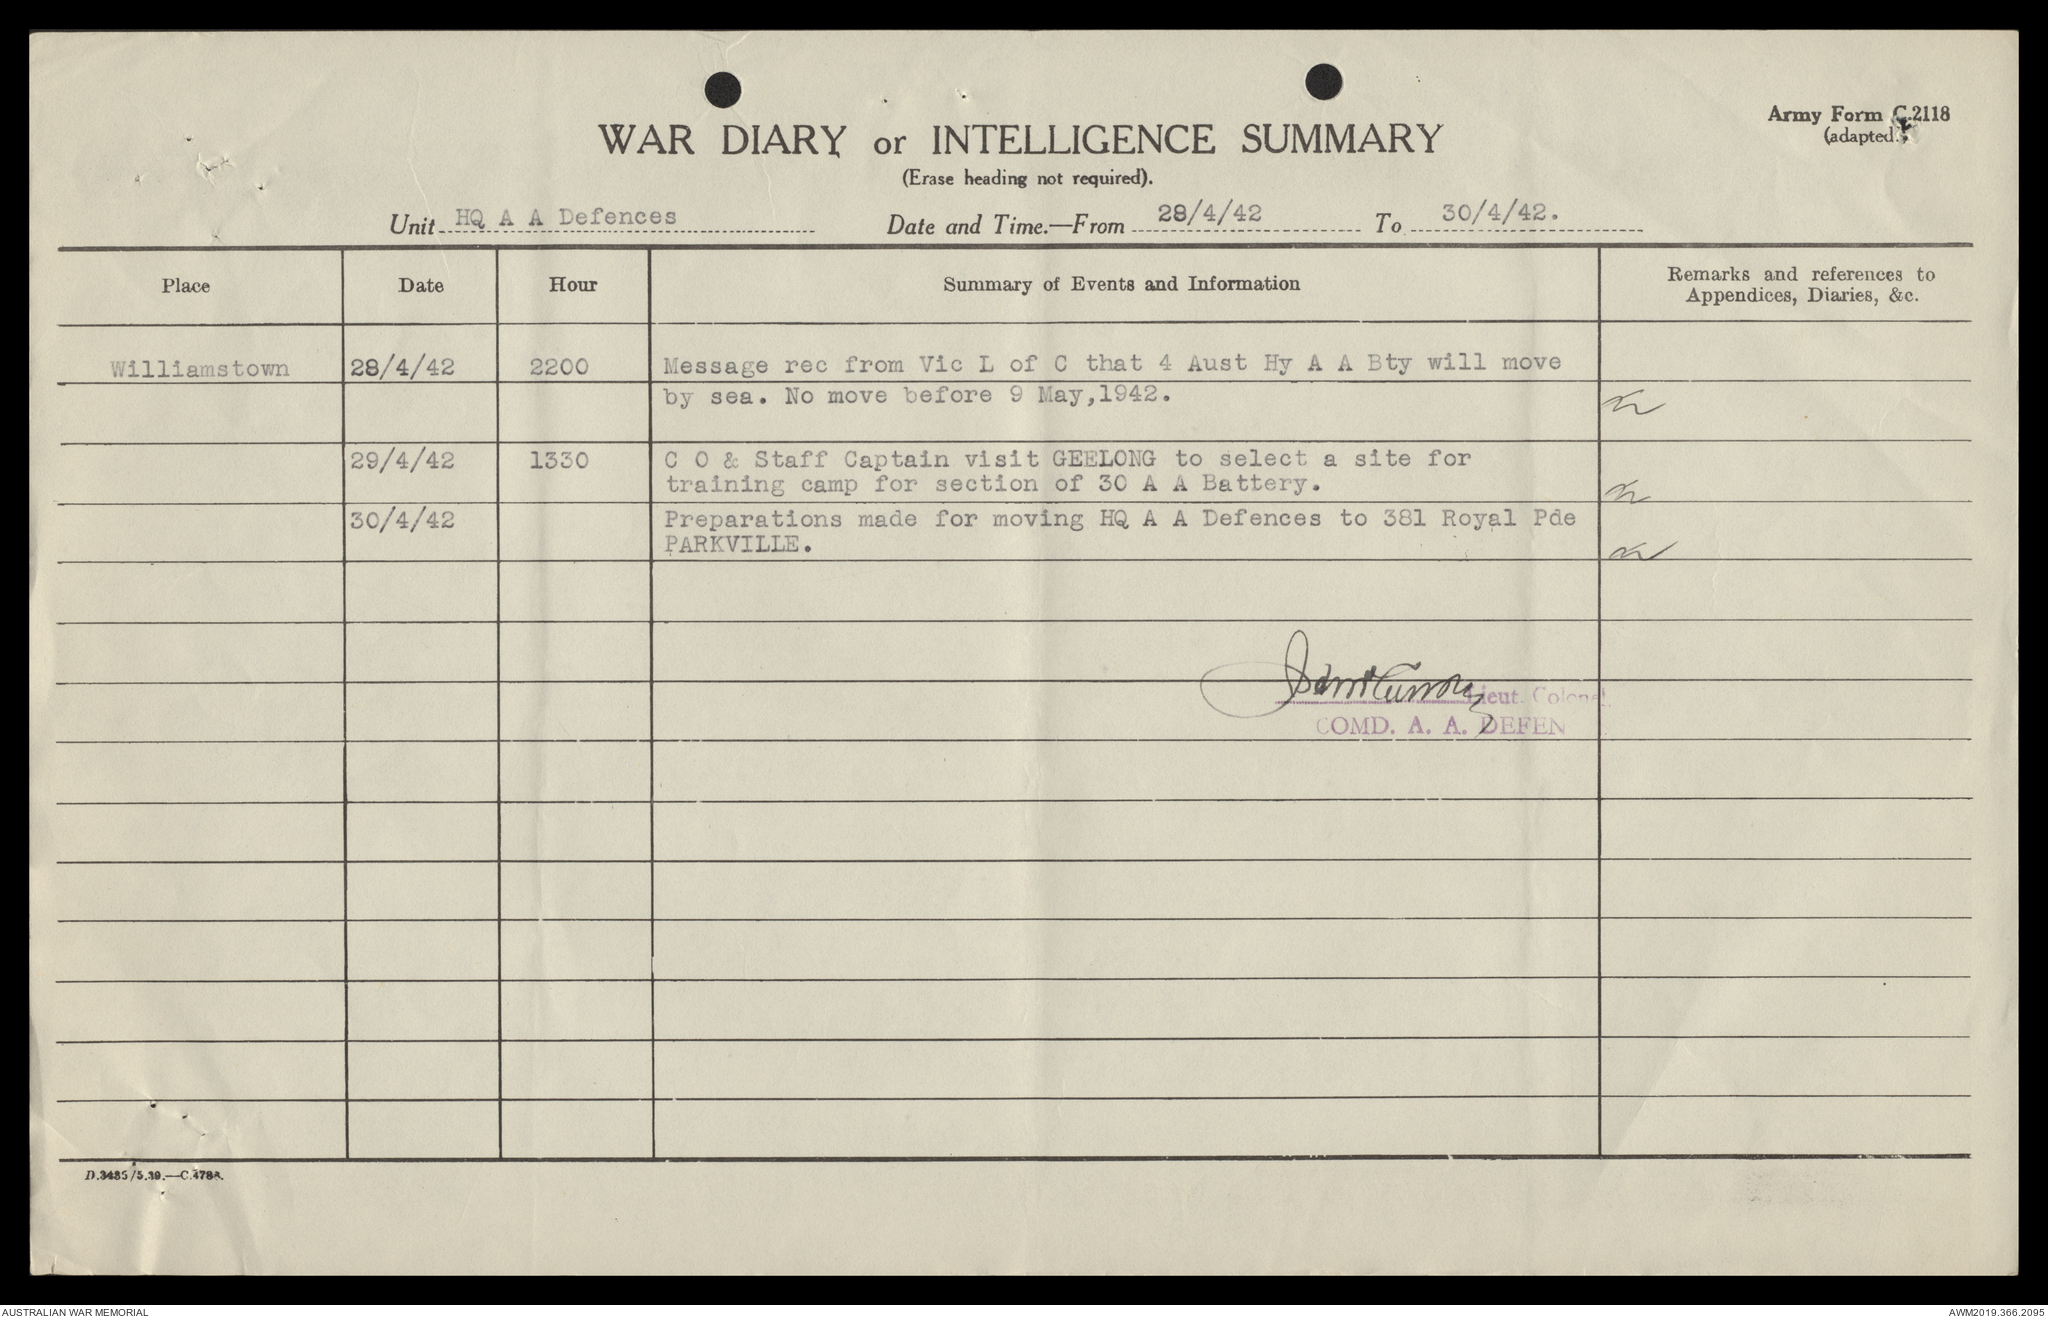 Army Form C.2118
(adapted.)
WAR DIARY or INTELLIGENCE SUMMARY
(Erase heading not required).
Unit HQ A A Defences Date and Time.—From 28/4/42 To 30/4/42.
Place Date Hour Summary of Events and Information Remarks and references to
Appendices, Diaries, &c.
Williamstown 28/4/42 2200 Message rec from Vic L of C that 4 Aust Hy A A Bty will move
by sea. No move before 9 May,1942.
29/4/42 1330 C O & Staff Captain visit GEELONG to select a site for
training camp for section of 30 A A Battery.
30/4/42 Preparations made for moving HQ A A Defences to 381 Royal Pde
PARKVILLE.
Lieut. Colonel.
COMD. A. A. DEFEN
D.3485/5.39.—C.4788.
AUSTRALIAN WAR MEMORIAL AWM2019.366.2095